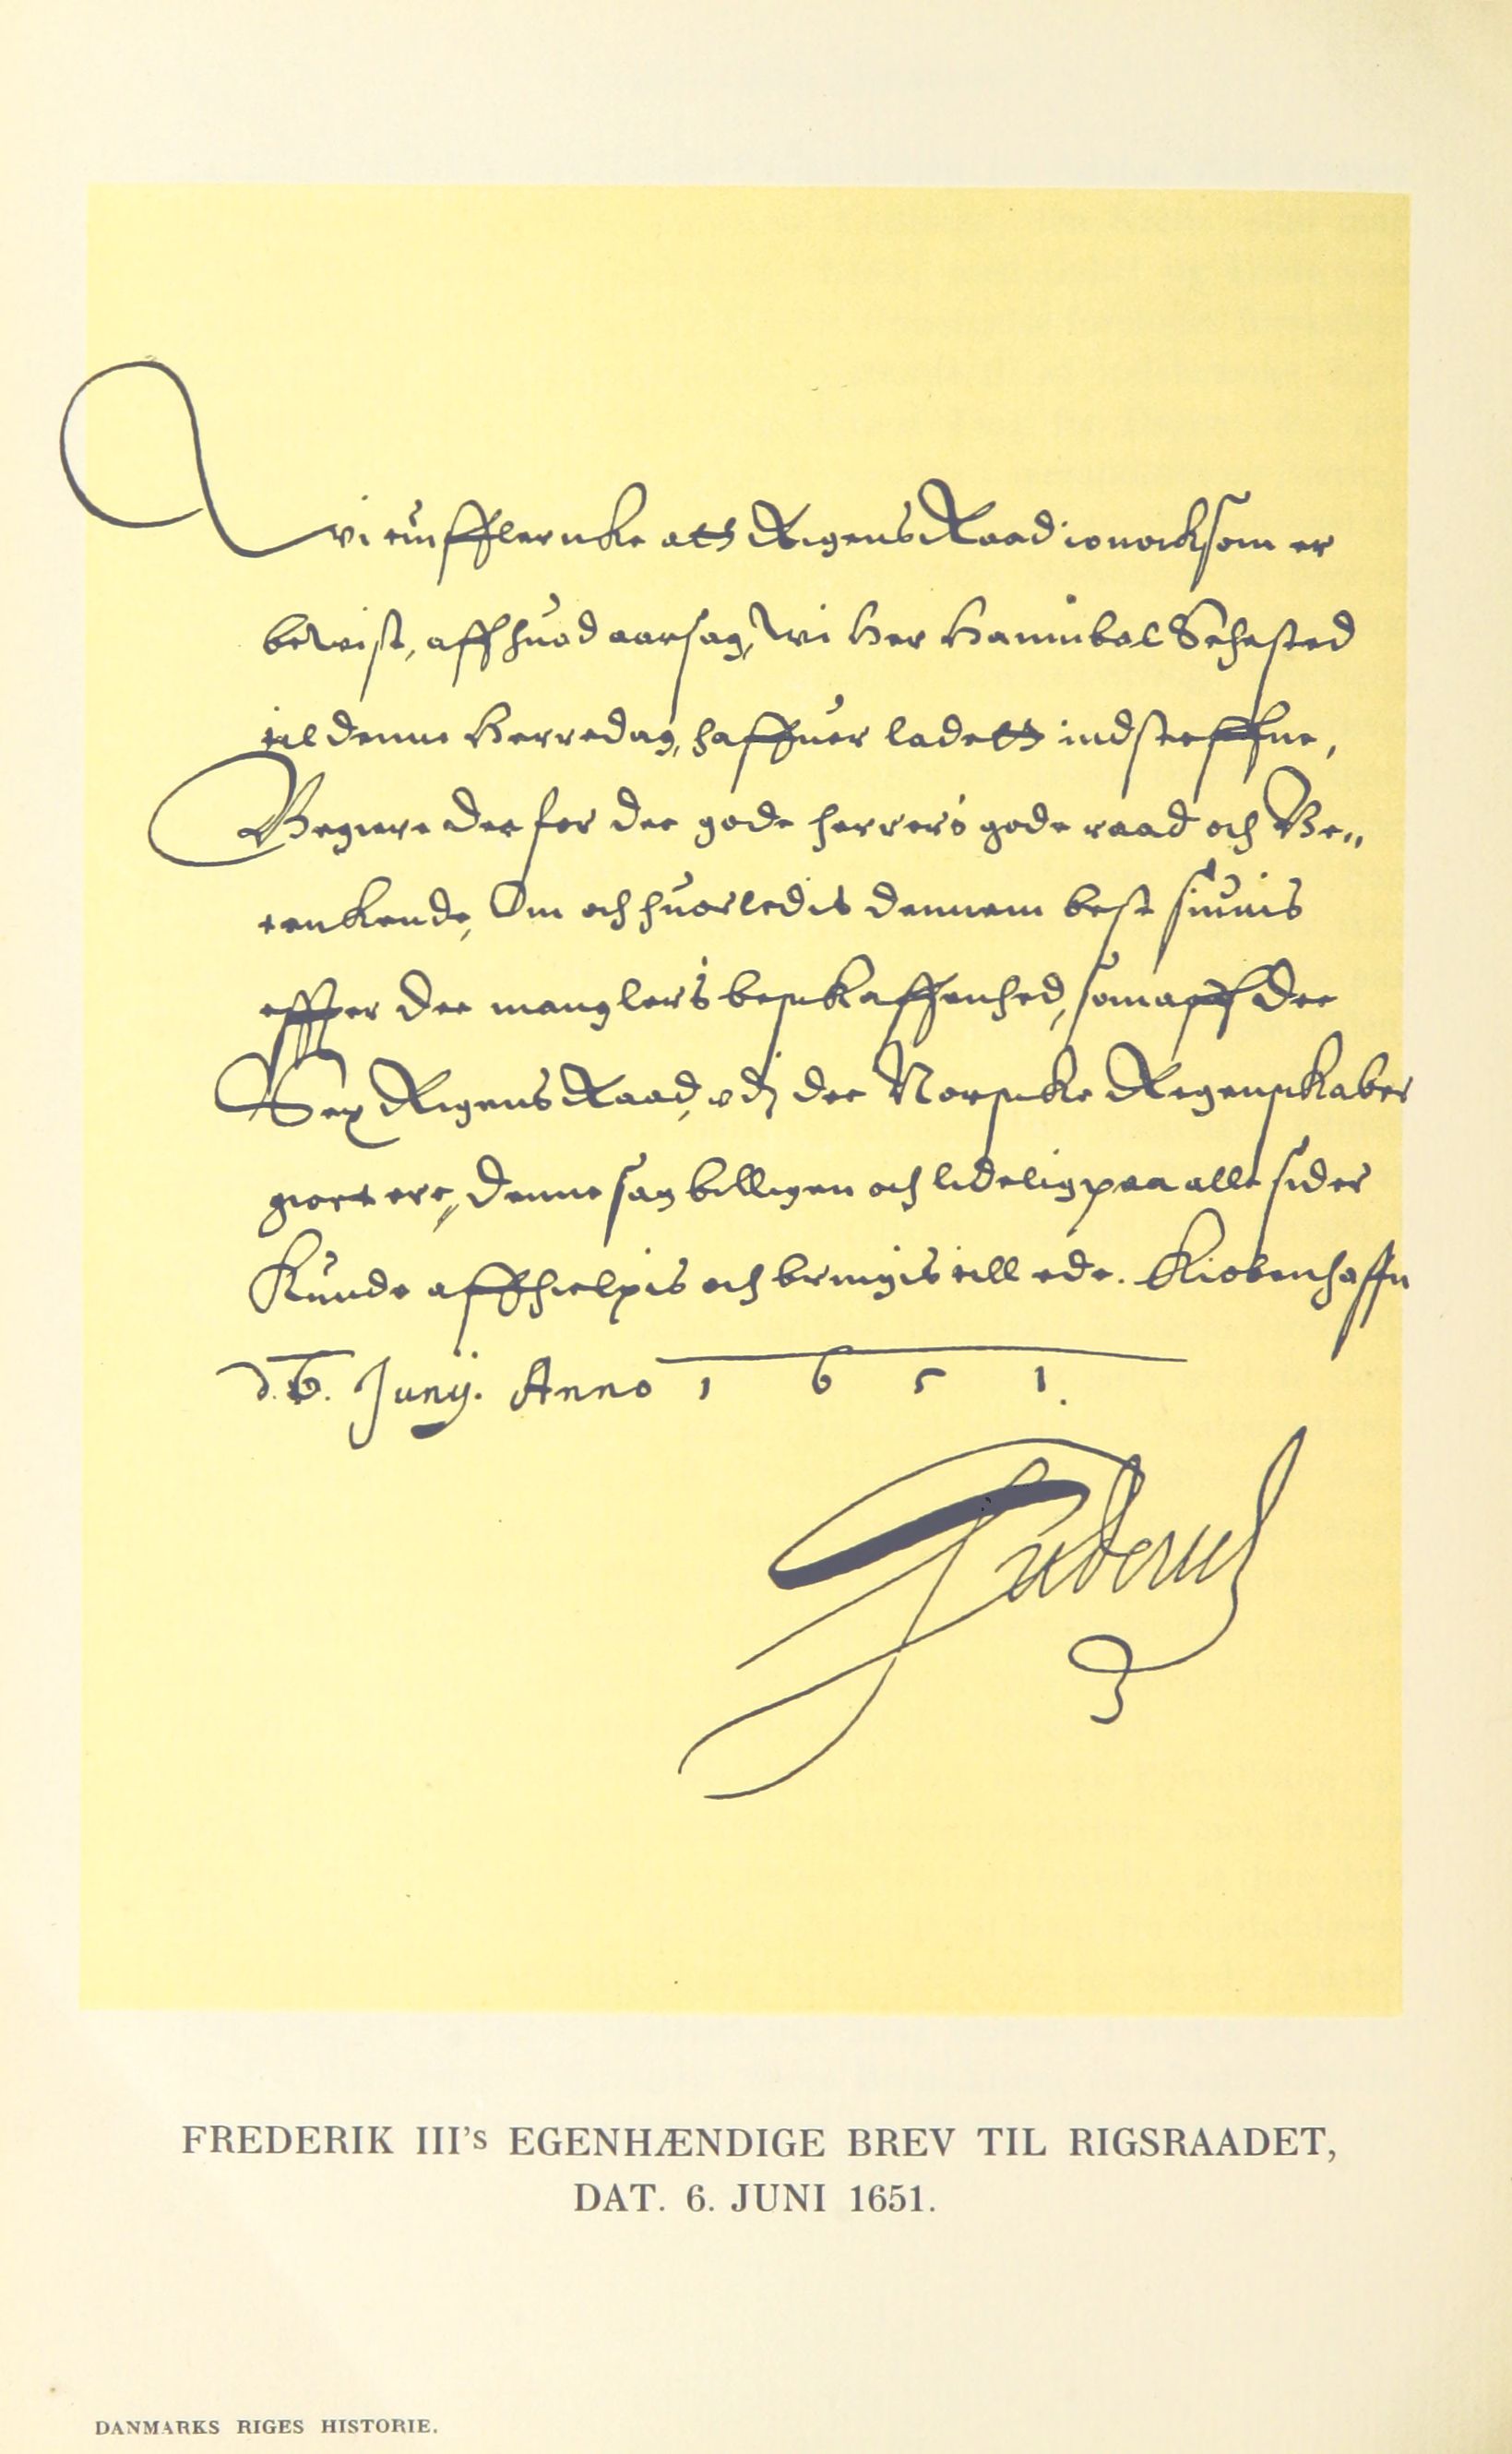 Wi tuiffler icke att Rigens Raad io nocksom er
bevist, aff huad aarsag, wi Her Hannibal Sehested
til denne Herredag, haffuer ladett indsteffne,
Begiere der for der gode herrers gode raad och Be„
tenkende, Om och huorledis dennem best siunis
effter de manglers beskaffenhed, som aff de
Sex Rigens Raad, vdj de Norske Regenskaber
giort ere, denne sag billigen och lidelig paa alle sider
Kunde affhielpis och bringis till ede. Kiobenhaffn
d. 6. Junij. Anno 1 6 5 1.
Friderich
FREDERIK III's EGENHÆNDIGE BREV TIL RIGSRAADET,
DAT. 6. JUNI 1651.
DANMARKS RIGES HISTORIE.